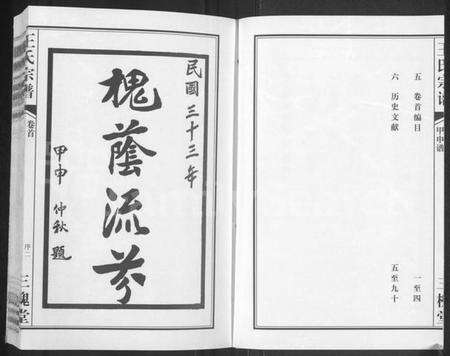 王氏宗譜
甲申譜
三槐堂
五 卷首編目 一至四
六 历史文献 五至九十
民國三十三年
槐蔭流芬
甲申 仲秋 題
王氏宗譜
卷首
序二
三槐堂